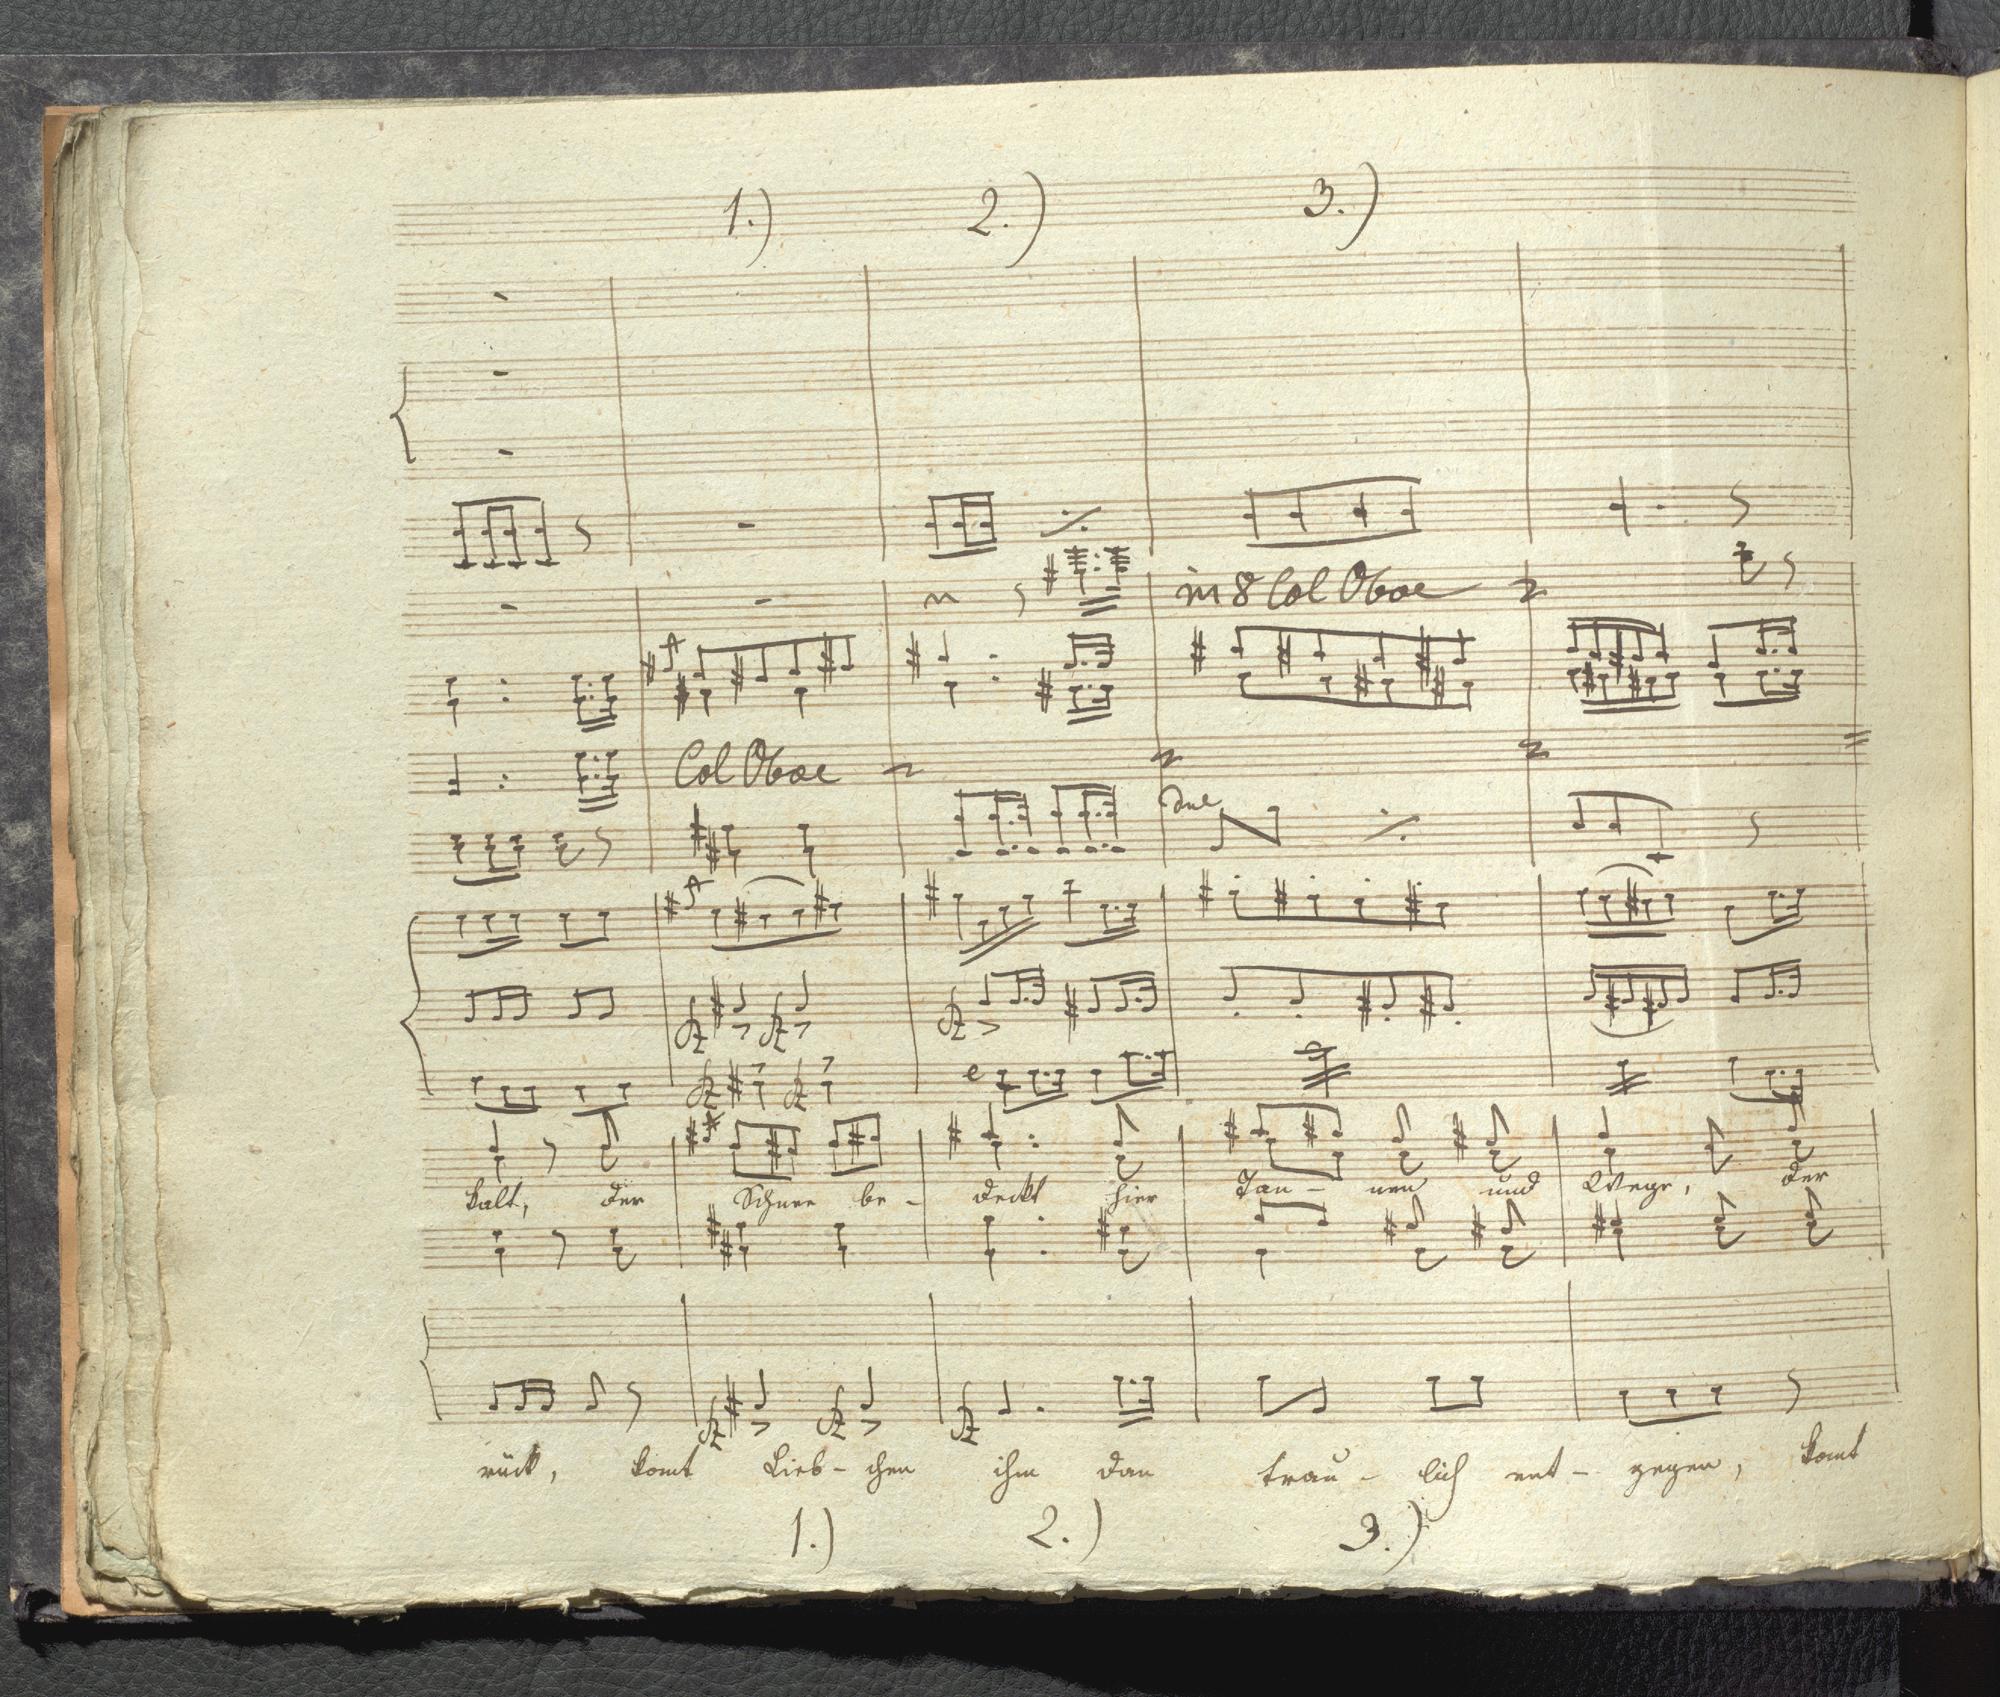 1.) 2.) 3.)
in 8 Col Oboe
Col Oboe
kalt, der Schnee be- deckt hier Tan- nen und Wege, der
rück, komt Lieb- chen ihm dan trau- lich ent- gegen, komt
1.) 2.) 3.)